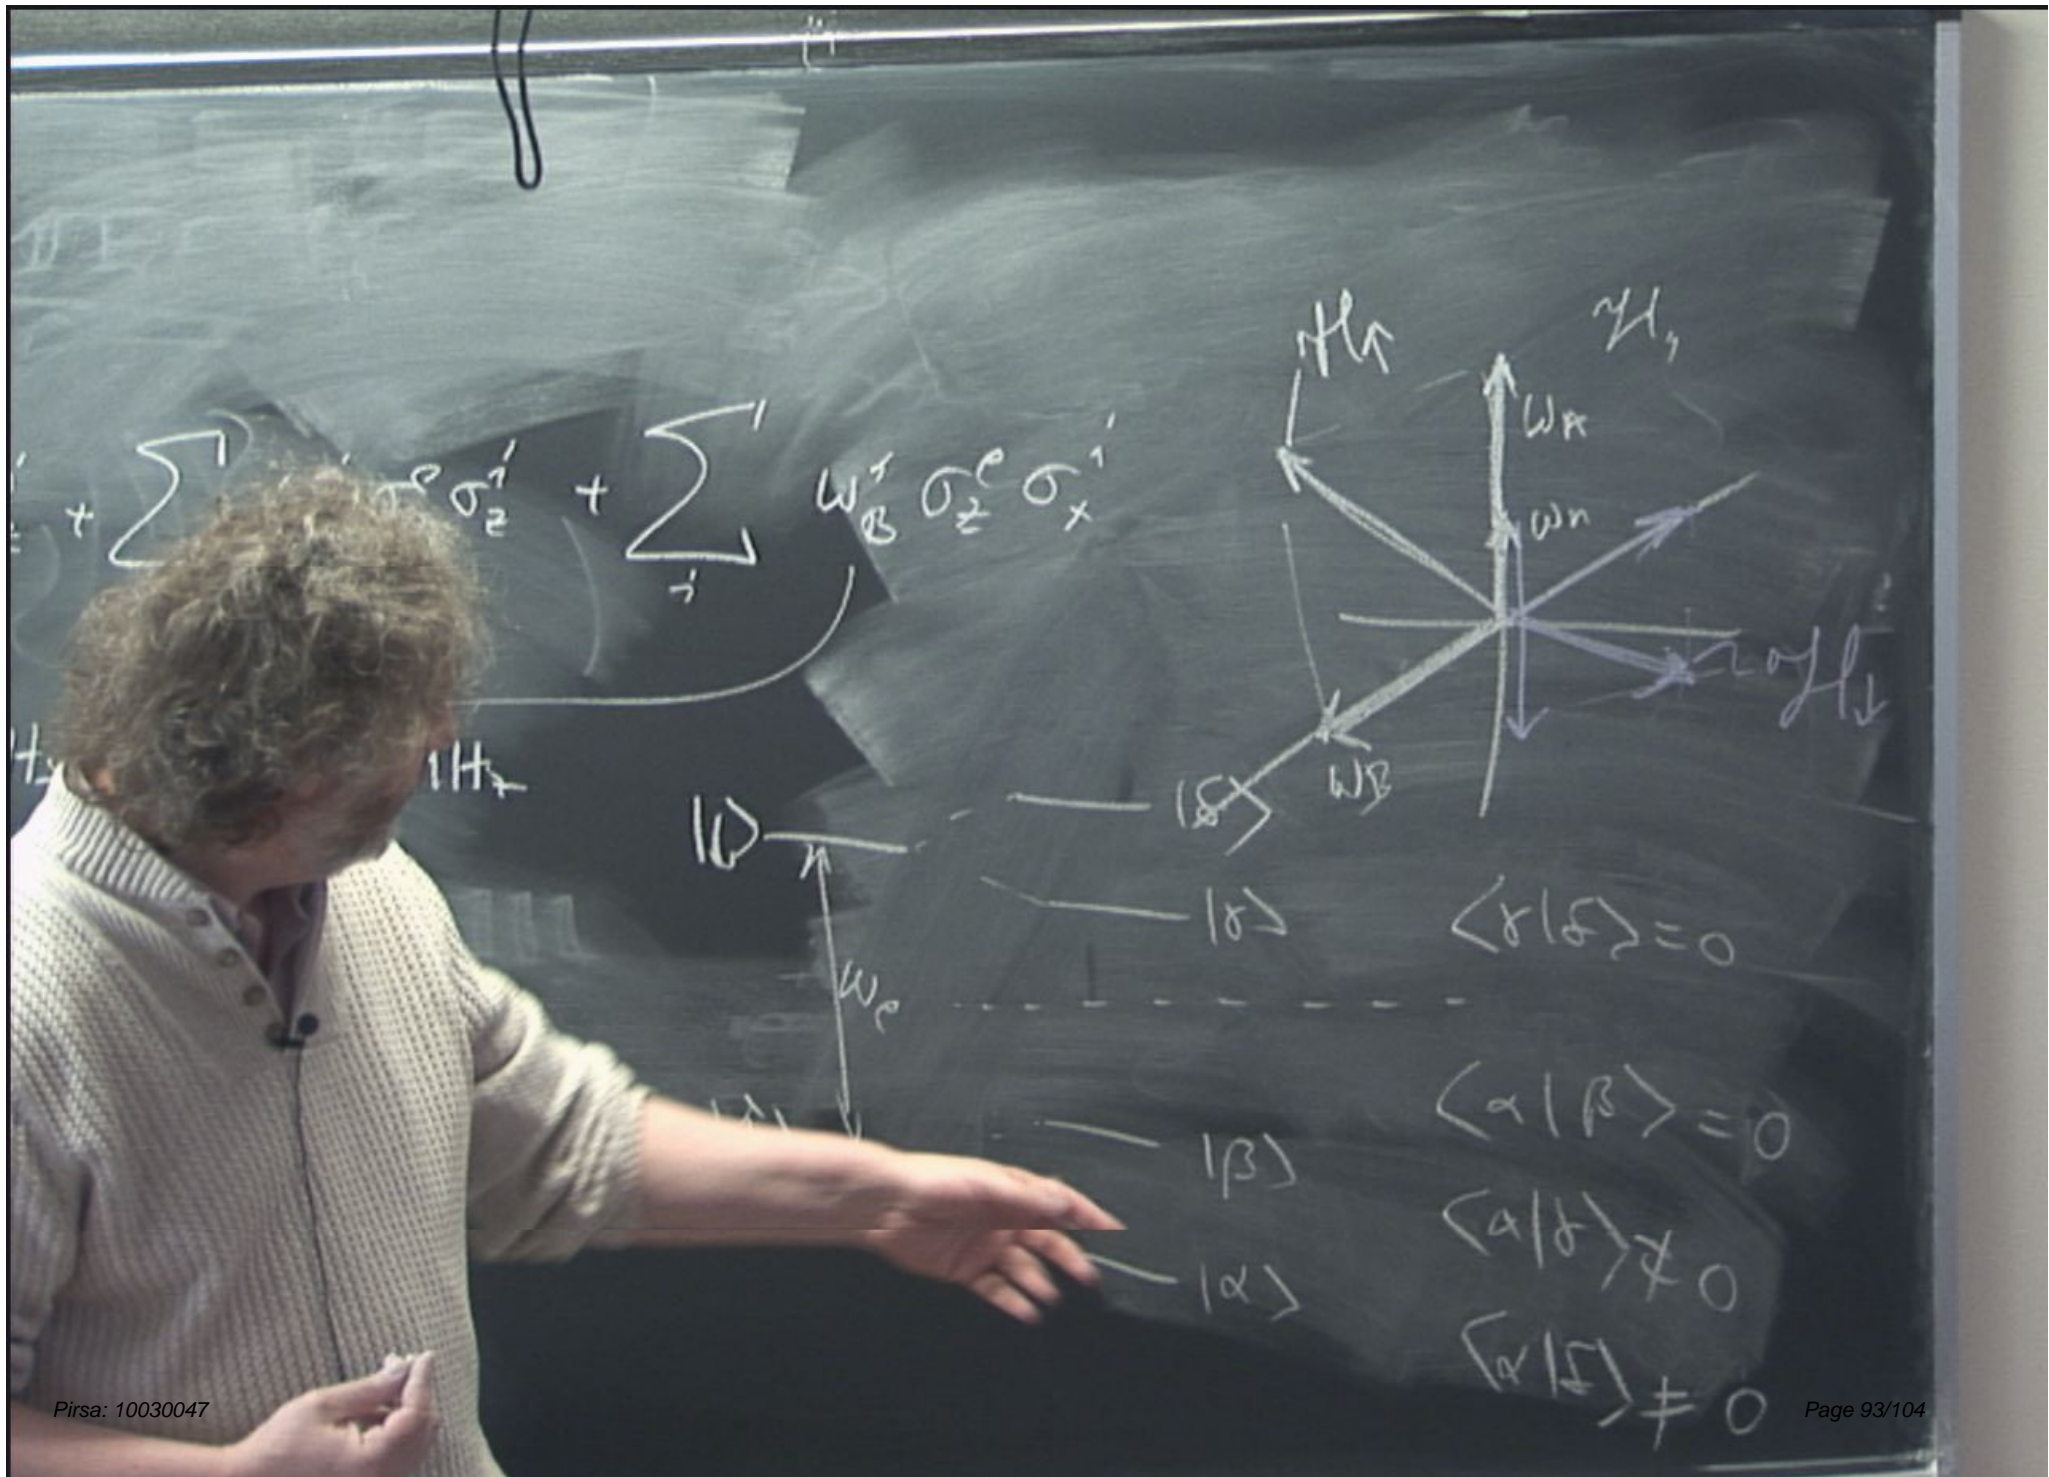 + Σ σ^e σ_z^i + Σ_i ω_B^i σ_z^e σ_x^i
1Hz
H↑
ω_A
ω_n
H↓
ω_B
|↓⟩
|δ⟩
|γ⟩
⟨γ|δ⟩ = 0
ω_e
|β⟩
⟨α|β⟩ = 0
|α⟩
⟨α|γ⟩ ≠ 0
⟨α|δ⟩ ≠ 0
Pirsa: 10030047
Page 93/104